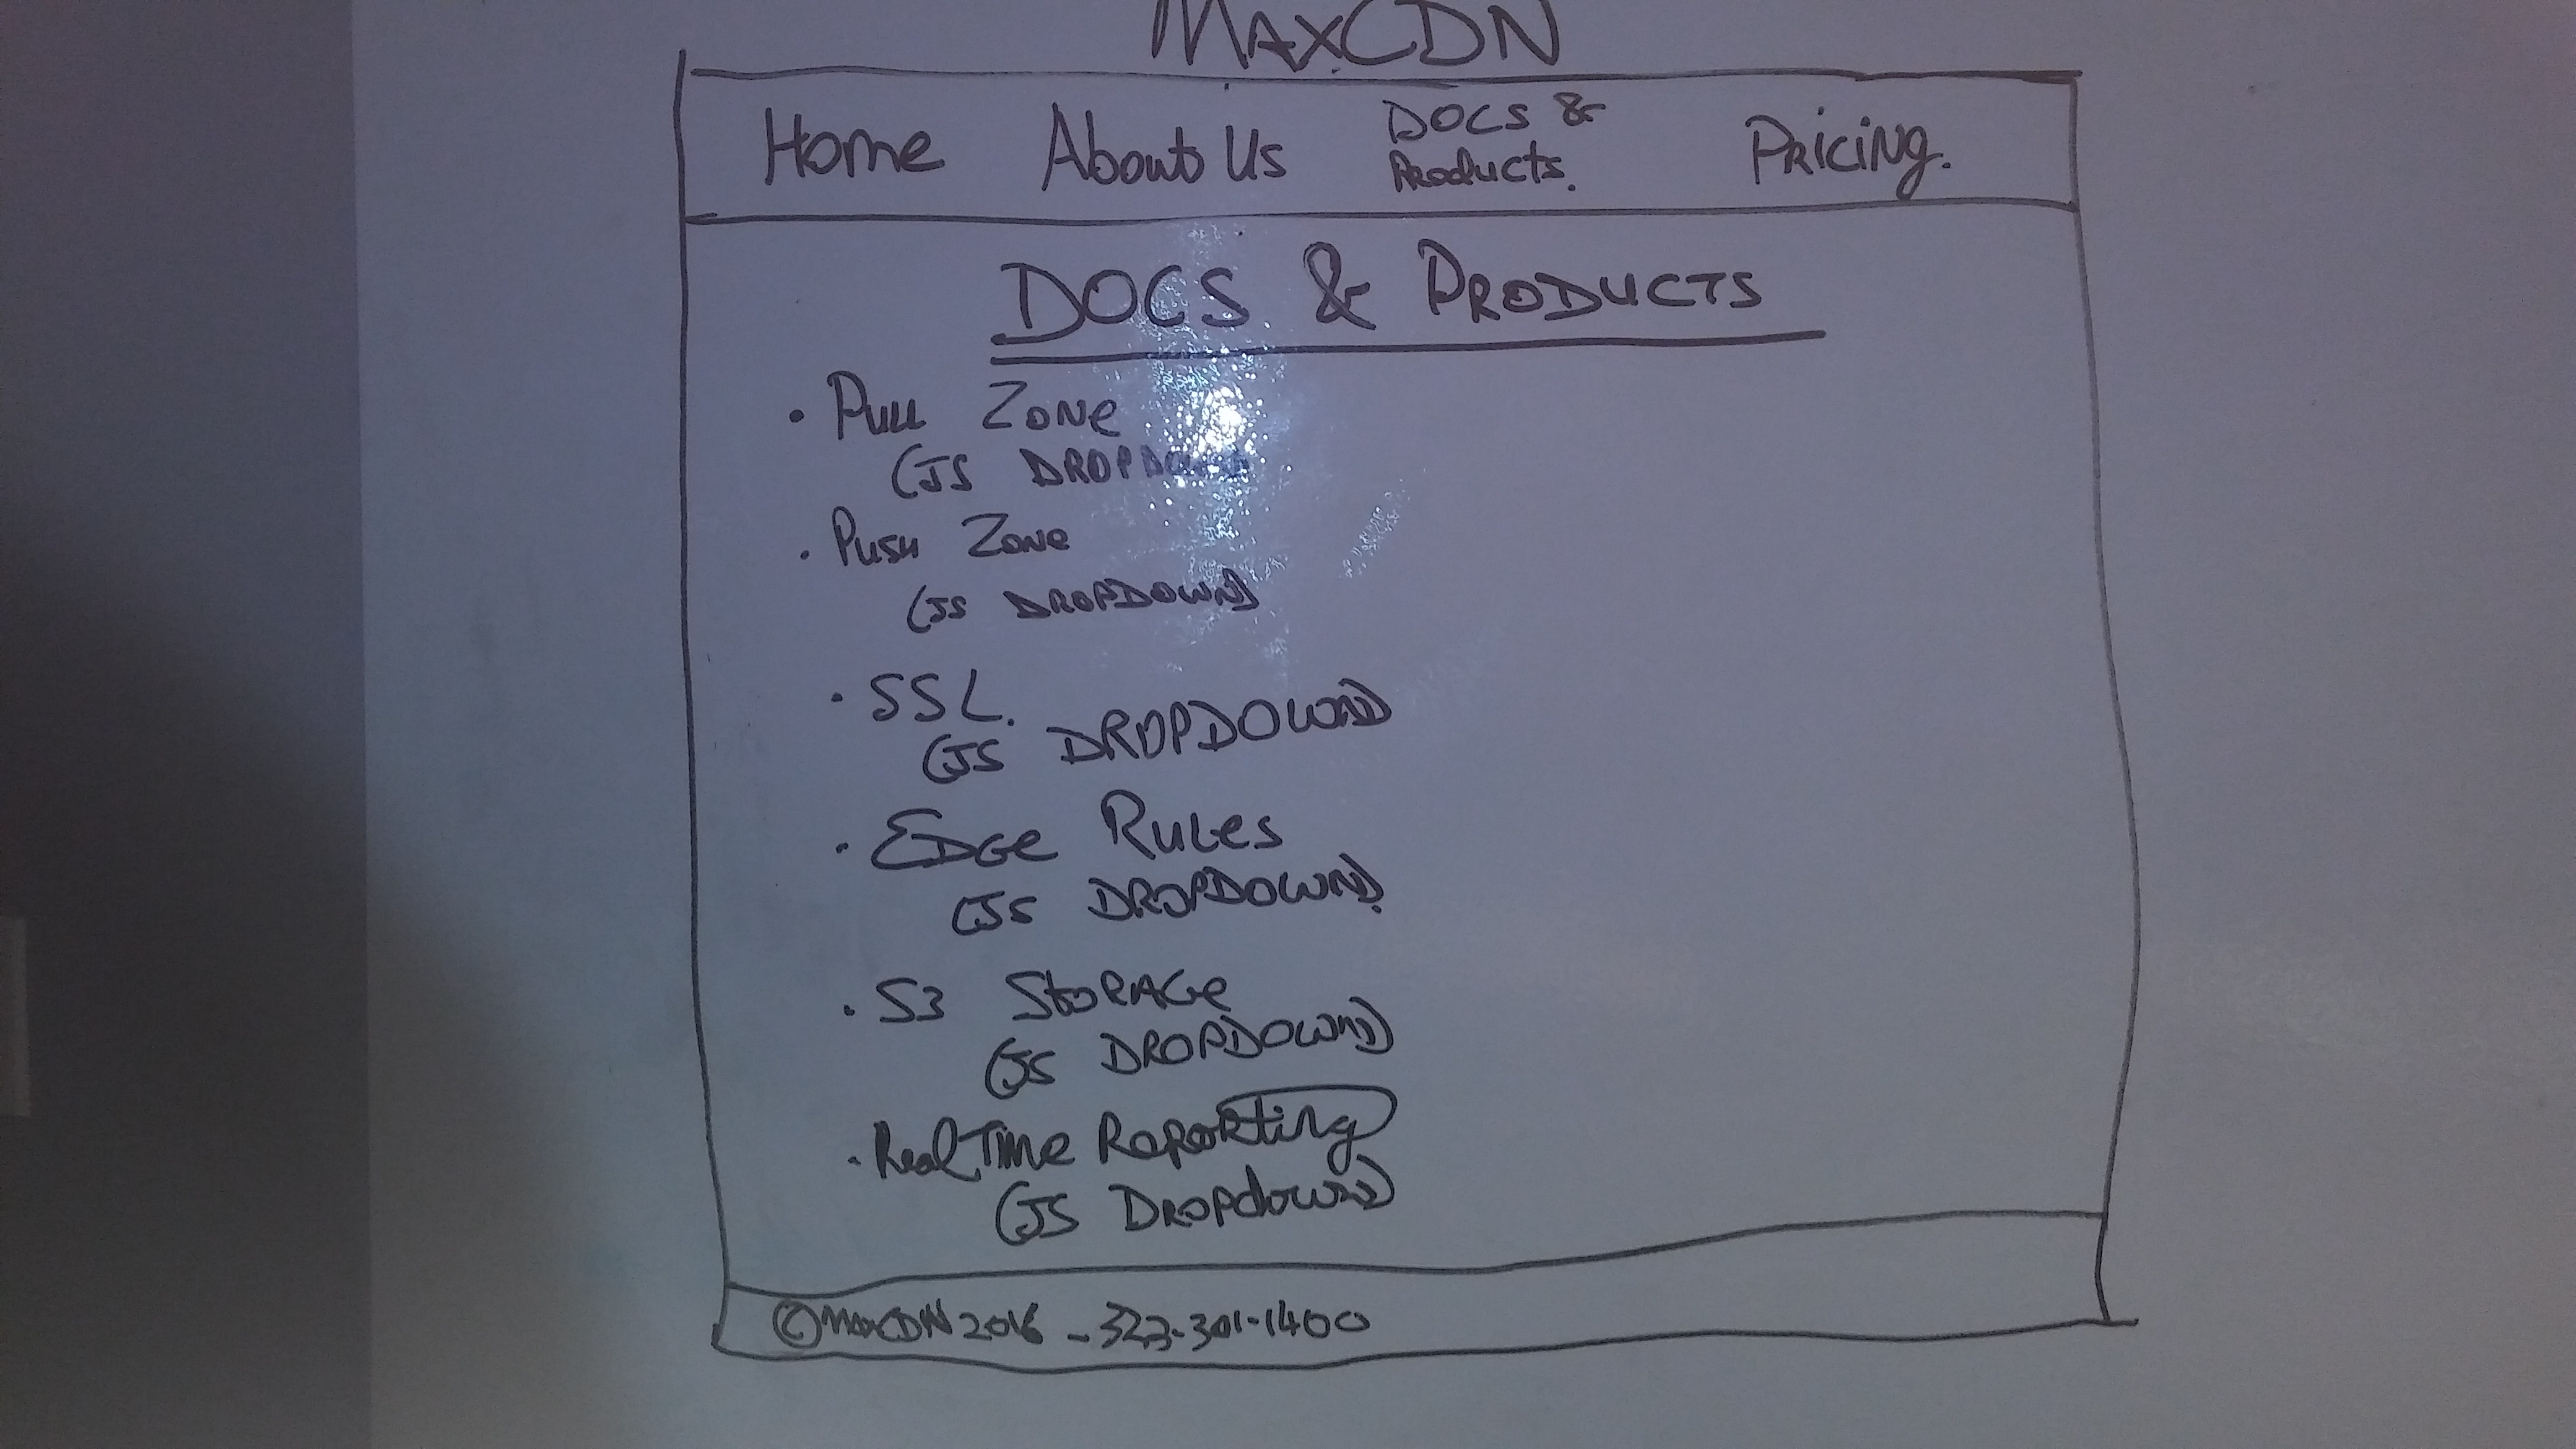 MAXCDN
Home About Us DOCS & Products. Pricing.
DOCS & PRODUCTS
· Pull Zone
(JS DROPDOWN)
· Push Zone
(JS DROPDOWN)
· SSL.
(JS DROPDOWN)
· EDGe Rules
(JS DROPDOWN)
· S3 StORAGe
(JS DROPDOWN)
· Real Time Reporting
(JS Dropdown)
© MaxCDN 2016 - 323-301-1400